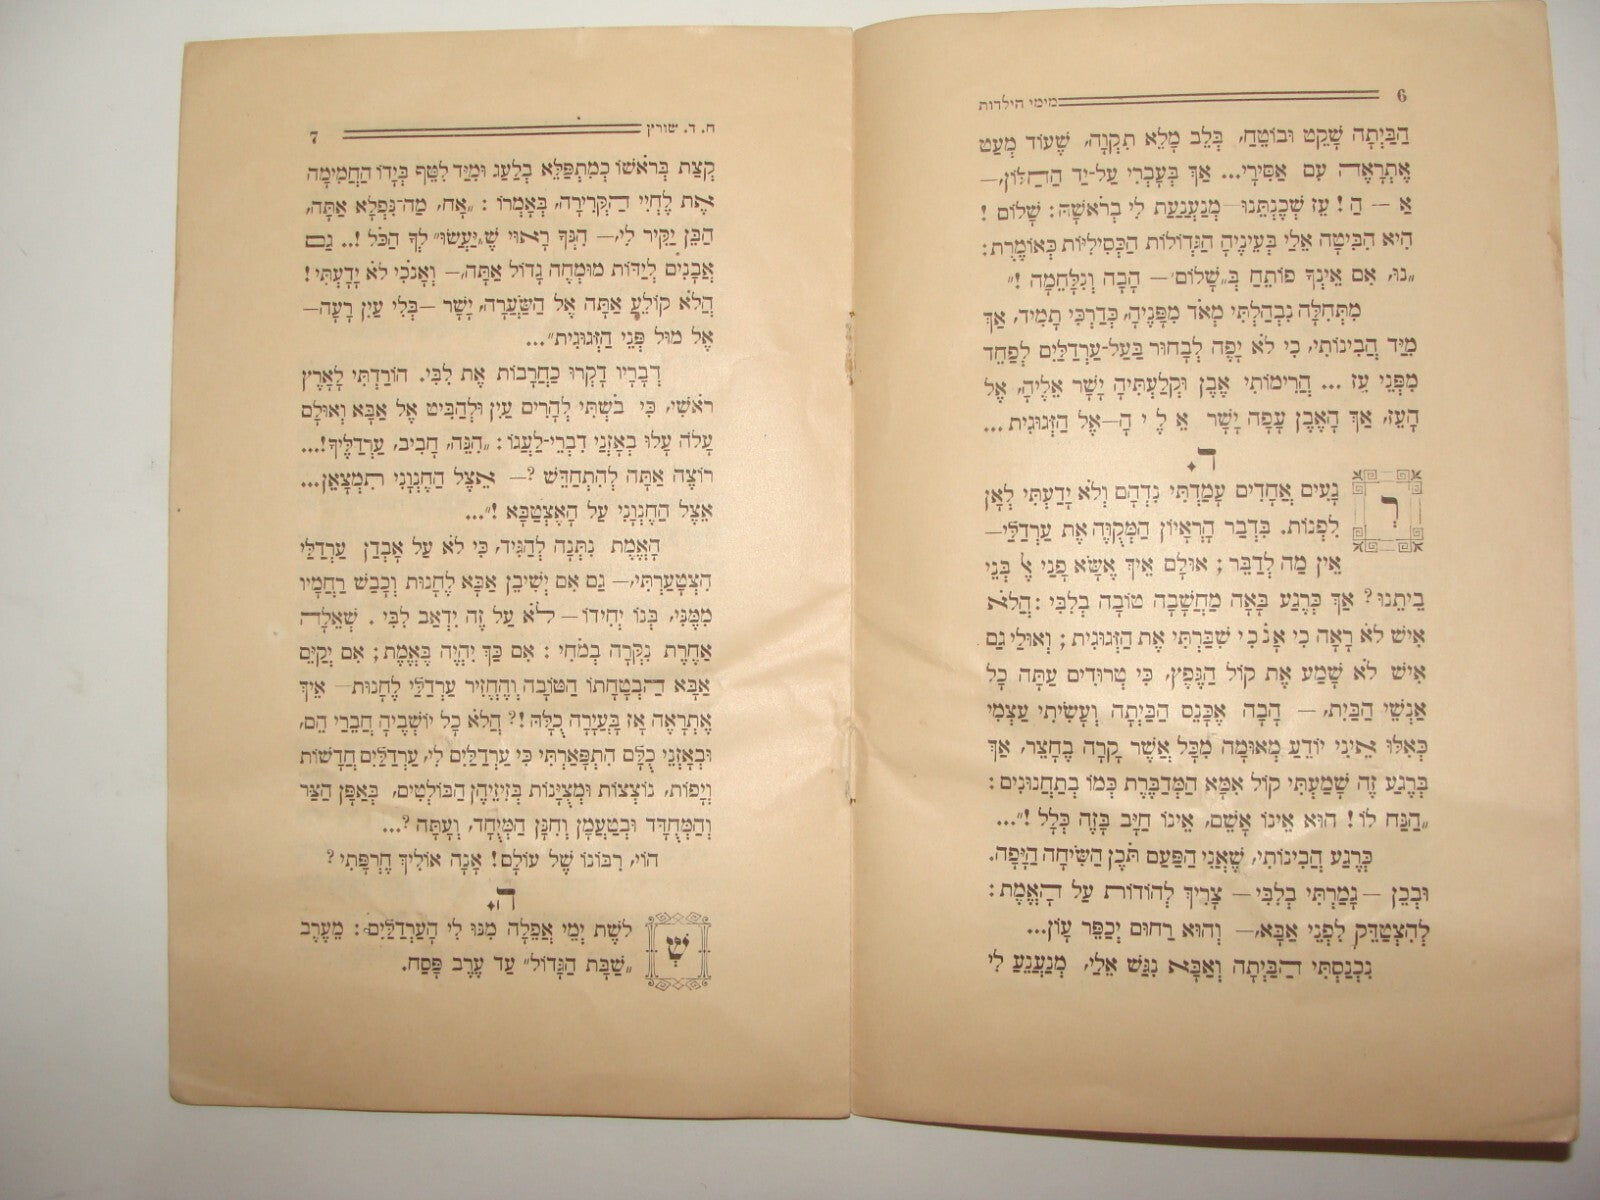 6 מימי הילדות
הַבַּיְתָה שָׁקֵט וּבוֹטֵחַ, בְּלֵב מָלֵא תִקְוָה, שֶׁעוֹד מְעַט
אֶתְרָאֶה עִם אַסִּירָי... אַךְ בְּעָבְרִי עַל-יַד הַחַלּוֹן,—
אַ — הַ! עֵז שְׁכֶנְתֵּנוּ—מְנַעְנַעַת לִי בְרֹאשָׁהּ: שָׁלוֹם!
הִיא הִבִּיטָה אֵלַי בְּעֵינֶיהָ הַגְּדוֹלוֹת הַכְּסִילִיּוֹת כְּאוֹמֶרֶת:
„נוּ, אִם אֵינְךָ פוֹתֵחַ בְּ„שָׁלוֹם”— הָבָה וְנִלָּחֵמָה!”
מִתְּחִלָּה נִבְהַלְתִּי מְאֹד מִפָּנֶיהָ, כְּדַרְכִּי תָמִיד, אַךְ
מִיַּד הֲבִינוֹתִי, כִּי לֹא יָפֶה לְבָחוּר בַּעַל-עַרְדָּלַיִם לְפַחֵד
מִפְּנֵי עֵז... הֲרִימוֹתִי אֶבֶן וּקְלַעְתִּיהָ יָשָׁר אֵלֶיהָ, אֶל
הָעֵז, אַךְ הָאֶבֶן עָפָה יָשָׁר אֵ לֶ י הָ—אֶל הַזְּגוּגִית...
ד.
רְגָעִים אֲחָדִים עָמַדְתִּי נִדְהָם וְלֹא יָדַעְתִּי לְאָן
לִפְנוֹת. בִּדְבַר הָרֵאָיוֹן הַמְקֻוֶּה אֶת עַרְדָּלַי—
אֵין מַה לְדַבֵּר; אוּלָם אֵיךְ אֶשָּׂא פָנַי אֶל בְּנֵי
בֵיתֵנוּ? אַךְ כְּרֶגַע בָּאָה מַחֲשָׁבָה טוֹבָה בְלִבִּי: הֲלֹא
אִישׁ לֹא רָאָה כִי אָנֹכִי שִׁבַּרְתִּי אֶת הַזְּגוּגִית; וְאוּלַי גַם
אִישׁ לֹא שָׁמַע אֶת קוֹל הַנֶּפֶץ, כִּי טְרוּדִים עַתָּה כָל
אַנְשֵׁי הַבַּיִת,— הָבָה אֶכָּנֵס הַבַּיְתָה וְעָשִׂיתִי עַצְמִי
כְּאִלּוּ אֵינִי יוֹדֵעַ מְאוּמָה מִכָּל אֲשֶׁר קָרָה בֶחָצֵר, אַךְ
בְּרֶגַע זֶה שָׁמַעְתִּי קוֹל אִמָּא הַמְדַבֶּרֶת כְּמוֹ בְתַחֲנוּנִים:
„הַנַּח לוֹ! הוּא אֵינוֹ אָשֵׁם, אֵינוֹ חַיָּב בָּזֶה כְּלָל!”...
כְּרֶגַע הֲבִינוֹתִי, שֶׁאֲנִי הַפַּעַם תֹּכֶן הַשִּׂיחָה הַיָּפָה.
וּבְכֵן —גָּמַרְתִּי בְלִבִּי— צָרִיךְ לְהוֹדוֹת עַל הָאֱמֶת:
לְהִצְטַדֵּק לִפְנֵי אַבָּא,— וְהוּא רַחוּם יְכַפֵּר עָוֹן...
נִכְנַסְתִּי הַבַּיְתָה וְאַבָּא נִגַּשׁ אֵלַי, מְנַעְנֵעַ לִי
ח. ד. שורץ 7
קְצָת בְּרֹאשׁוֹ כְּמִתְפַּלֵּא בְלַעַג וּמִיַּד לִטֵּף בְּיָדוֹ הַחֲמִימָה
אֶת לֶחְיִי הַקְּרִירָה, בְּאָמְרוֹ: „אָח, מַה־נִּפְלָא אַתָּה,
הַבֵּן יַקִּיר לִי,— הִנְּךָ רָאוּי שֶׁ„יַּעֲשׂוּ” לְךָ הַכֹּל!.. גַּם
אֲבָנִים לְיַדּוֹת מוּמְחֶה גָדוֹל אַתָּה,— וְאָנֹכִי לֹא יָדָעְתִּי!
הֲלֹא קוֹלֵעַ אַתָּה אֶל הַשַּׂעֲרָה, יָשָׁר —בְּלִי עַיִן רָעָה—
אֶל מוּל פְּנֵי הַזְּגוּגִית”...
דְּבָרָיו דָּקְרוּ כַּחֲרָבוֹת אֶת לִבִּי. הוֹרַדְתִּי לָאָרֶץ
רֹאשִׁי, כִּי בֹשְׁתִּי לְהָרִים עַיִן וּלְהַבִּיט אֶל אַבָּא וְאוּלָם
עָלֹה עָלוּ בְאָזְנַי דִּבְרֵי-לַעֲגוֹ: „הִנֵּה, חָבִיב, עַרְדָּלֶיךָ!...
רוֹצֶה אַתָּה לְהִתְחַדֵּשׁ?— אֵצֶל הַחֶנְוָנִי תִּמְצָאֵן...
אֵצֶל הַחֶנְוָנִי עַל הָאִצְטַבָּא!”...
הָאֱמֶת נִתְּנָה לְהַגִּיד, כִּי לֹא עַל אָבְדַן עַרְדָּלַי
הִצְטַעַרְתִּי,— גַּם אִם יְשִׁיבֵן אַבָּא לַחֲנוּת וְכָבַשׁ רַחֲמָיו
מִמֶּנִּי, בְּנוֹ יְחִידוֹ—לֹא עַל זֶה יִדְאַב לִבִּי. שְׁאֵלָה
אַחֶרֶת נִקְּרָה בְמֹחִי: אִם כָּךְ יִהְיֶה בֶּאֱמֶת; אִם יְקַיֵּם
אַבָּא הַבְטָחָתוֹ הַטּוֹבָה וְהֶחֱזִיר עַרְדָּלַי לַחֲנוּת— אֵיךְ
אֶתְרָאֶה אָז בָּעֲיָרָה כֻלָּהּ!? הֲלֹא כָל יוֹשְׁבֶיהָ חֲבֵרַי הֵם,
וּבְאָזְנֵי כֻלָּם הִתְפָּאַרְתִּי כִּי עַרְדָּלַיִם לִי, עַרְדָּלַיִם חֲדָשׁוֹת
וְיָפוֹת, נוֹצְצוֹת וּמְצֻיָּנוֹת בְּזִיזֵיהֶן הַבּוֹלְטִים, בְּאָפָּן הַצַּר
וְהַמְחֻדָּד וּבְטַעֲמָן וְחִנָּן הַמְיֻחָד, וְעָתָּה?...
הוֹי, רִבּוֹנוֹ שֶׁל עוֹלָם! אָנָה אוֹלִיךְ חֶרְפָּתִי?
ה.
שְׁלֹשֶׁת יְמֵי אֲפֵלָה מִנּוּ לִי הָעַרְדָּלַיִם: מֵעֶרֶב
„שַׁבָּת הַגָּדוֹל” עַד עֶרֶב פֶּסַח.